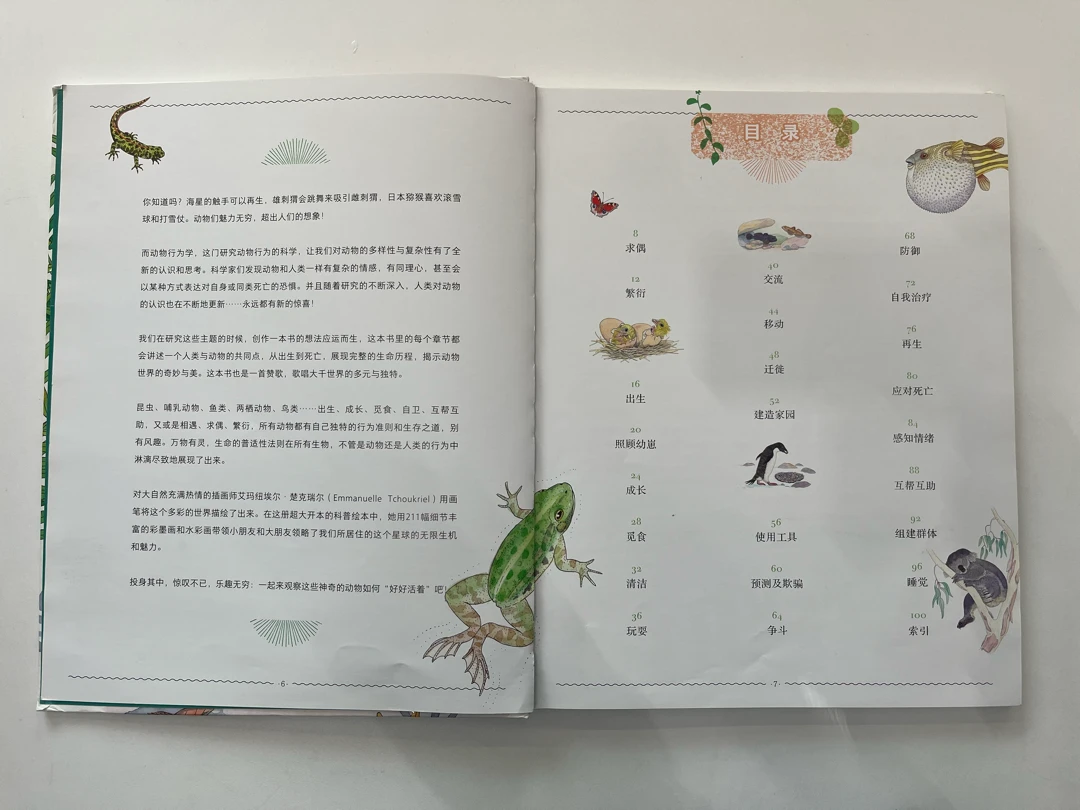 你知道吗？海星的触手可以再生，雄刺猬会跳舞来吸引雌刺猬，日本猕猴喜欢滚雪
球和打雪仗。动物们魅力无穷，超出人们的想象！
而动物行为学，这门研究动物行为的科学，让我们对动物的多样性与复杂性有了全
新的认识和思考。科学家们发现动物和人类一样有复杂的情感，有同理心，甚至会
以某种方式表达对自身或同类死亡的恐惧。并且随着研究的不断深入，人类对动物
的认识也在不断地更新……永远都有新的惊喜！
我们在研究这些主题的时候，创作一本书的想法应运而生，这本书里的每个章节都
会讲述一个人类与动物的共同点，从出生到死亡，展现完整的生命历程，揭示动物
世界的奇妙与美。这本书也是一首赞歌，歌唱大千世界的多元与独特。
昆虫、哺乳动物、鱼类、两栖动物、鸟类……出生、成长、觅食、自卫、互帮互
助，又或是相遇、求偶、繁衍，所有动物都有自己独特的行为准则和生存之道，别
有风趣。万物有灵，生命的普适性法则在所有生物，不管是动物还是人类的行为中
淋漓尽致地展现了出来。
对大自然充满热情的插画师艾玛纽埃尔·楚克瑞尔（Emmanuelle Tchoukriel）用画
笔将这个多彩的世界描绘了出来。在这册超大开本的科普绘本中，她用211幅细节丰
富的彩墨画和水彩画带领小朋友和大朋友领略了我们所居住的这个星球的无限生机
和魅力。
投身其中，惊叹不已，乐趣无穷：一起来观察这些神奇的动物如何“好好活着”吧！
·6·
目 录
8
求偶
12
繁衍
16
出生
20
照顾幼崽
24
成长
28
觅食
32
清洁
36
玩耍
40
交流
44
移动
48
迁徙
52
建造家园
56
使用工具
60
预测及欺骗
64
争斗
68
防御
72
自我治疗
76
再生
80
应对死亡
84
感知情绪
88
互帮互助
92
组建群体
96
睡觉
100
索引
·7·